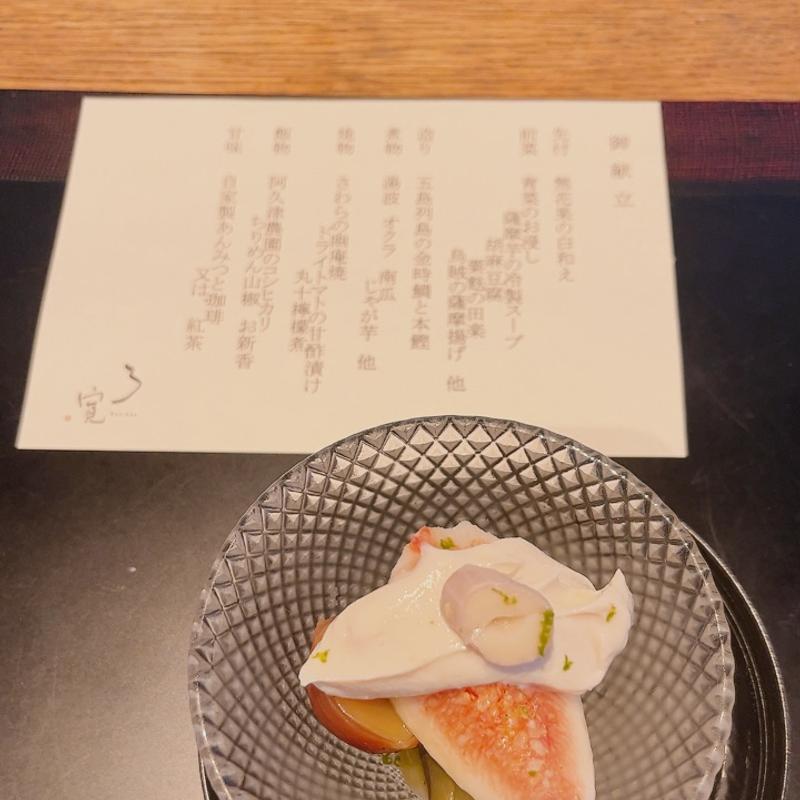 御献立
先付 無花果の白和え
前菜 青菜のお浸し
薩摩芋の冷製スープ
胡麻豆腐
粟麩の田楽
烏賊の薩摩揚げ 他
造り 五島列島の金時鯛と本鰹
煮物 湯波 オクラ 南瓜
じゃが芋 他
焼物 さわらの幽庵焼
トライトマトの甘酢漬け
丸十檸檬煮
飯物 阿久津農園のコシヒカリ
ちりめん山椒 お新香
甘味 自家製あんみつと珈琲
又は 紅茶
寛